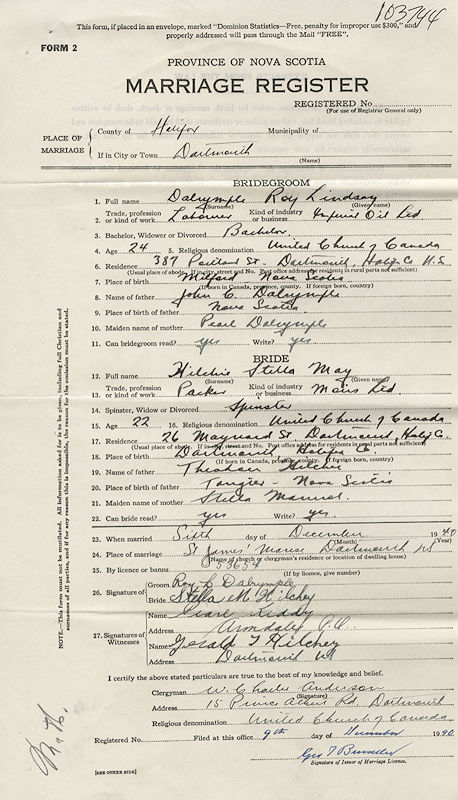 103744
This form, if placed in an envelope, marked "Dominion Statistics—Free, penalty for improper use $300," and
properly addressed will pass through the Mail "FREE".
FORM 2
PROVINCE OF NOVA SCOTIA
MARRIAGE REGISTER
REGISTERED No.
(For use of Registrar General only)
PLACE OF MARRIAGE
County of Halifax Municipality of
If in City or Town Dartmouth
(Name)
BRIDEGROOM
1. Full name Dalrymple Roy Lindsay
(Surname) (Given name)
2. Trade, profession or kind of work Labourer Kind of industry or business Imperial Oil Ltd.
3. Bachelor, Widower or Divorced Bachelor
4. Age 24 5. Religious denomination United Church of Canada
6. Residence 387 Portland St. Dartmouth, Halifax Co N.S.
(Usual place of abode. If in city, street and No. Post office address for resident in rural parts not sufficient)
7. Place of birth Milford Nova Scotia
(If born in Canada, province, county. If foreign born, country)
8. Name of father John C. Dalrymple
9. Place of birth of father Nova Scotia
10. Maiden name of mother Pearl Dalrymple
11. Can bridegroom read? yes Write? yes
BRIDE
12. Full name Hilchie Stella May
(Surname) (Given name)
13. Trade, profession or kind of work Packer Kind of industry or business Moirs Ltd.
14. Spinster, Widow or Divorced Spinster
15. Age 22 16. Religious denomination United Church of Canada
17. Residence 26 Maynard St Dartmouth, Halifx C.
(Usual place of abode. If in city, street and No. Post office address for resident in rural parts not sufficient)
18. Place of birth Dartmouth, Halifax Co.
(If born in Canada, province, county. If foreign born, country)
19. Name of father Hilchie
20. Place of birth of father Tangier - Nova Scotia
21. Maiden name of mother Stella
22. Can bride read? yes Write? yes
23. When married Sixth day of December 1940
(Month) (Year)
24. Place of marriage St James' Manse Dartmouth NS
(Name of church or clergyman's residence or location of dwelling house)
25. By licence or banns 53654
(If by licence, give number)
26. Signature of
Groom Roy L Dalrymple
Bride Stella M. Hilchey
27. Signatures of Witnesses
Name Pearl
Address Armdale P.O.
Name Gerald T Hilchey
Address Dartmouth NS
I certify the above stated particulars are true to the best of my knowledge and belief.
Clergyman W. Charles Anderson
(Signature)
Address 15 Prince Albert Rd. Dartmouth
Religious denomination United Church of Canada
Registered No. Filed at this office 9th day of December 1940
Geo T
Signature of Issuer of Marriage Licence.
[SEE OTHER SIDE]
NOTE.—This form must not be mutilated. All information asked for is to be given, including full Christian and
surnames of all parties, and if for any reason this is impossible, the reason for the omission must be stated.